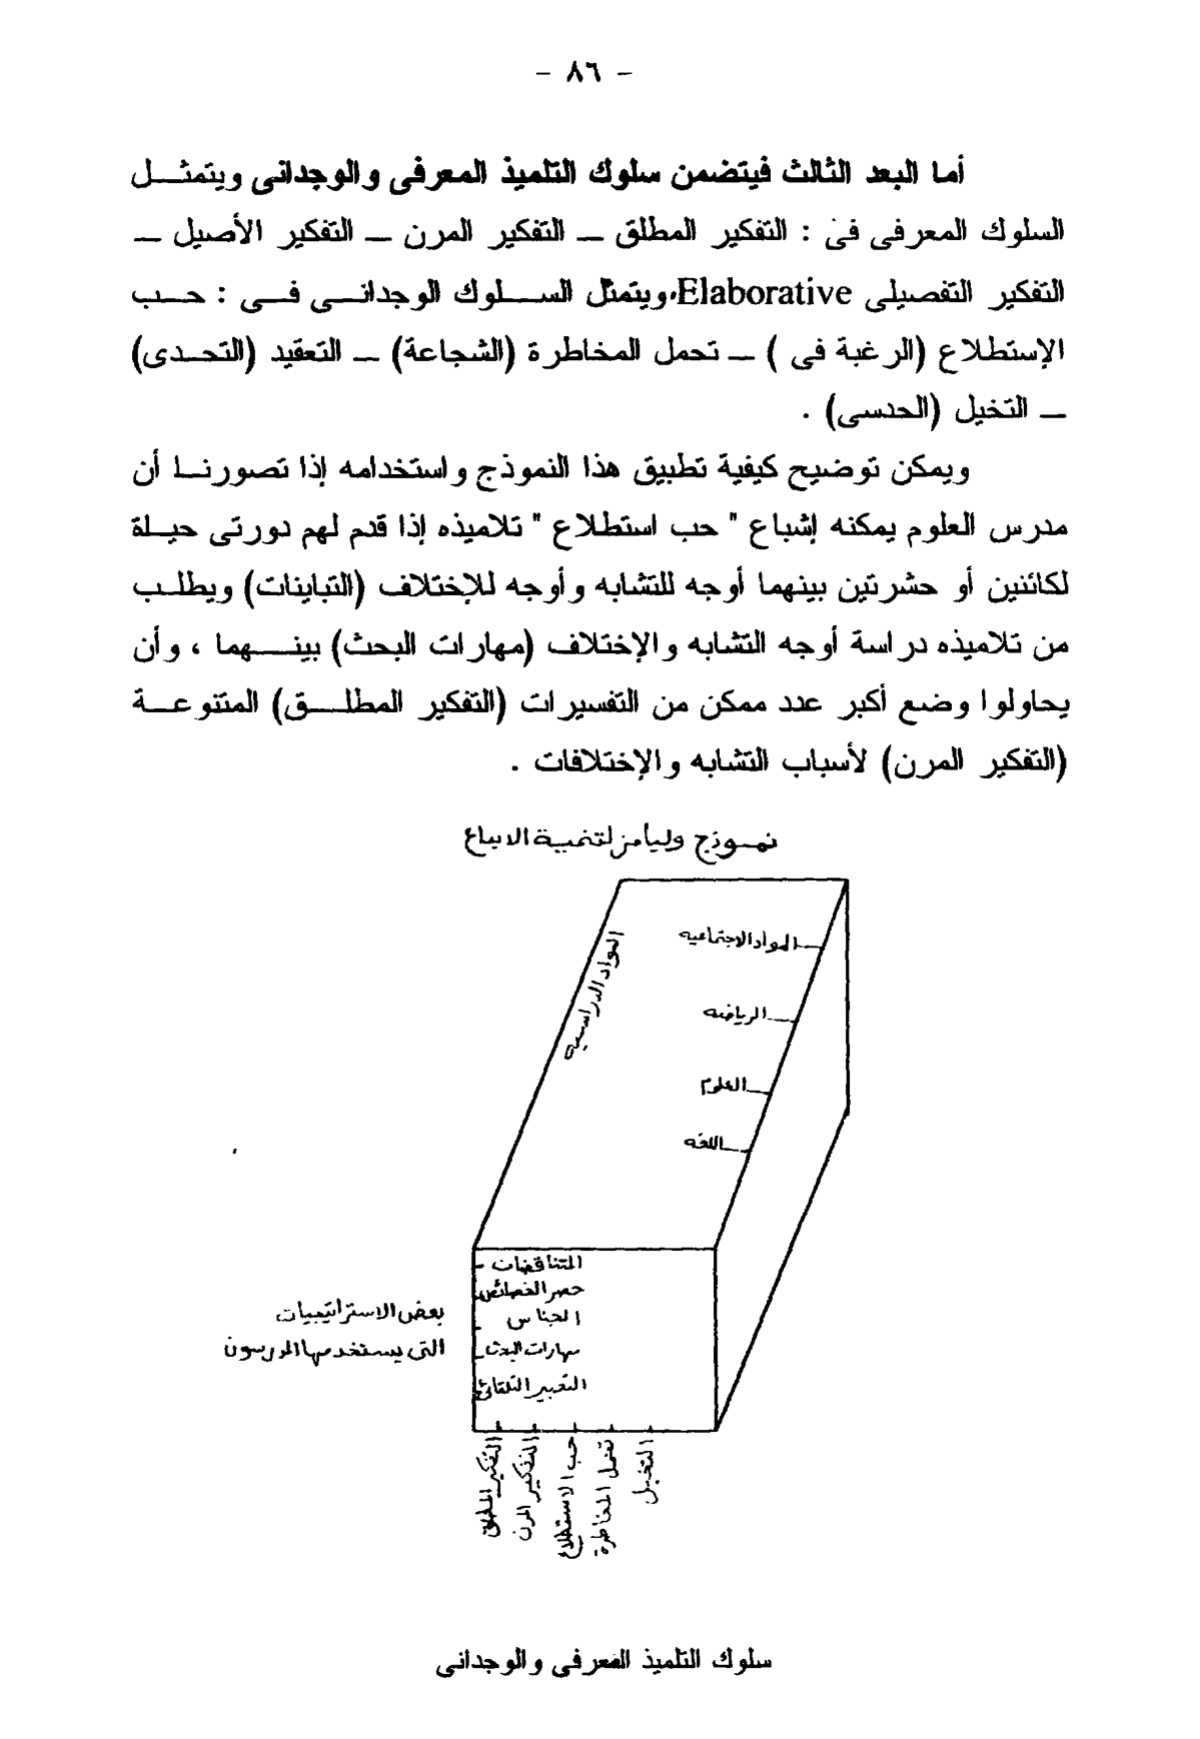 - ٨٦ -
أما البعد الثالث فيتضمن سلوك التلميذ المعرفى والوجدانى ويتمثل
السلوك المعرفى فى : التفكير المطلق – التفكير المرن – التفكير الأصيل –
التفكير التفصيلى Elaborative، ويتمثل السلوك الوجدانى فى : حب
الإستطلاع (الرغبة فى ) – تحمل المخاطرة (الشجاعة) – التعقيد (التحدى)
– التخيل (الحدسى) .
ويمكن توضيح كيفية تطبيق هذا النموذج واستخدامه إذا تصورنا أن
مدرس العلوم يمكنه إشباع " حب استطلاع " تلاميذه إذا قدم لهم دورتى حياة
لكائنين أو حشرتين بينهما أوجه للتشابه وأوجه للإختلاف (التباينات) ويطلب
من تلاميذه دراسة أوجه التشابه والإختلاف (مهارات البحث) بينهما ، وأن
يحاولوا وضع أكبر عدد ممكن من التفسيرات (التفكير المطلق) المتنوعة
(التفكير المرن) لأسباب التشابه والإختلافات .
نموذج وليامز لتنمية الابداع
المواد الدراسيه
المواد الاجتماعيه
الرياضه
العلوم
اللغه
المتناقضات
حصر الخصائص
الجناس
مهارات البحث
التعبير التلقائى
بعض الاستراتيجيات
التى يستخدمها المدرسون
التفكير المطلق
التفكير المرن
حب الاستطلاع
تحمل المخاطرة
التخيل
سلوك التلميذ المعرفى والوجدانى